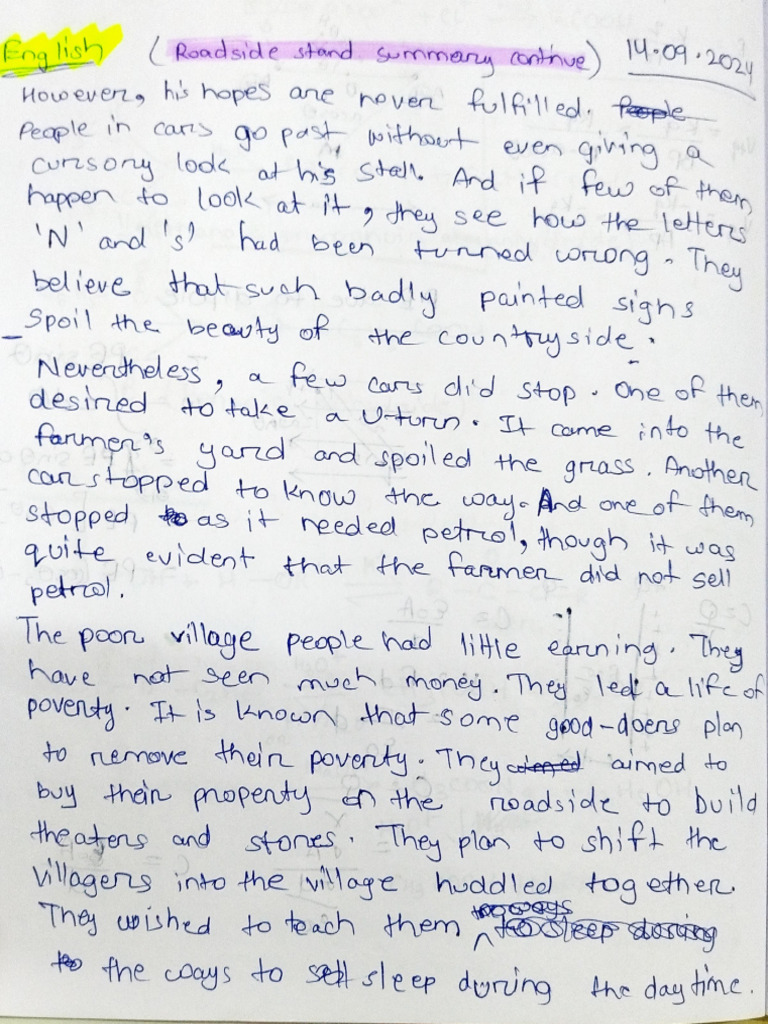 English (Roadside stand summary continue) 14.09.2024
However, his hopes are never fulfilled. People
People in cars go past without even giving a
cursory look at his stall. And if few of them
happen to look at it, they see how the letters
'N' and 's' had been turned wrong. They
believe that such badly painted signs
spoil the beauty of the countryside.
Nevertheless, a few cars did stop. One of them
desired to take a U-turn. It came into the
farmer's yard and spoiled the grass. Another
car stopped to know the way. And one of them
stopped to as it needed petrol, though it was
quite evident that the farmer did not sell
petrol.
The poor village people had little earning. They
have not seen much money. They led a life of
poverty. It is known that some good-doers plan
to remove their poverty. They aimed to
buy their property on the roadside to build
theaters and stores. They plan to shift the
villagers into the village huddled together.
They wished to teach them to ways to sleep during
to the ways to sleep during the daytime.